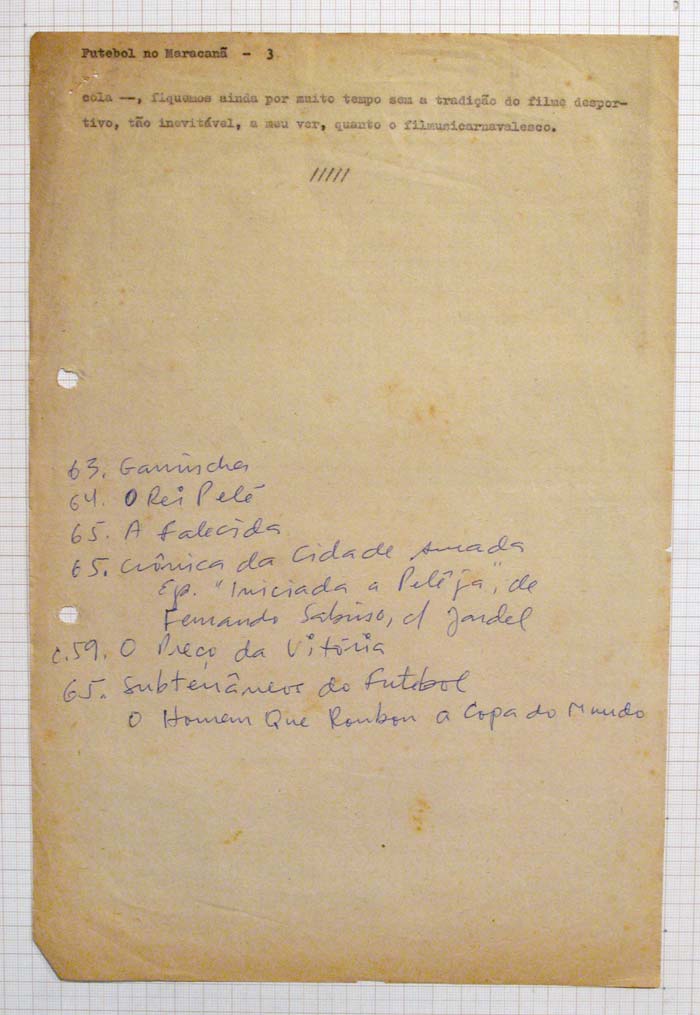 Futebol no Maracanã - 3
cola --, fiquemos ainda por muito tempo sem a tradição do filme despor-
tivo, tão inevitável, a meu ver, quanto o filmusicarnavalesco.
/////
63. Garrincha
64. O Rei Pelé
65. A falecida
65. Crônica da Cidade Amada
Ep. "Iniciada a Pelêja", de
Fernando Sabino, c/ Jardel
c.59. O Preço da Vitória
65. Subterrâneos do Futebol
O Homem Que Roubou a Copa do Mundo